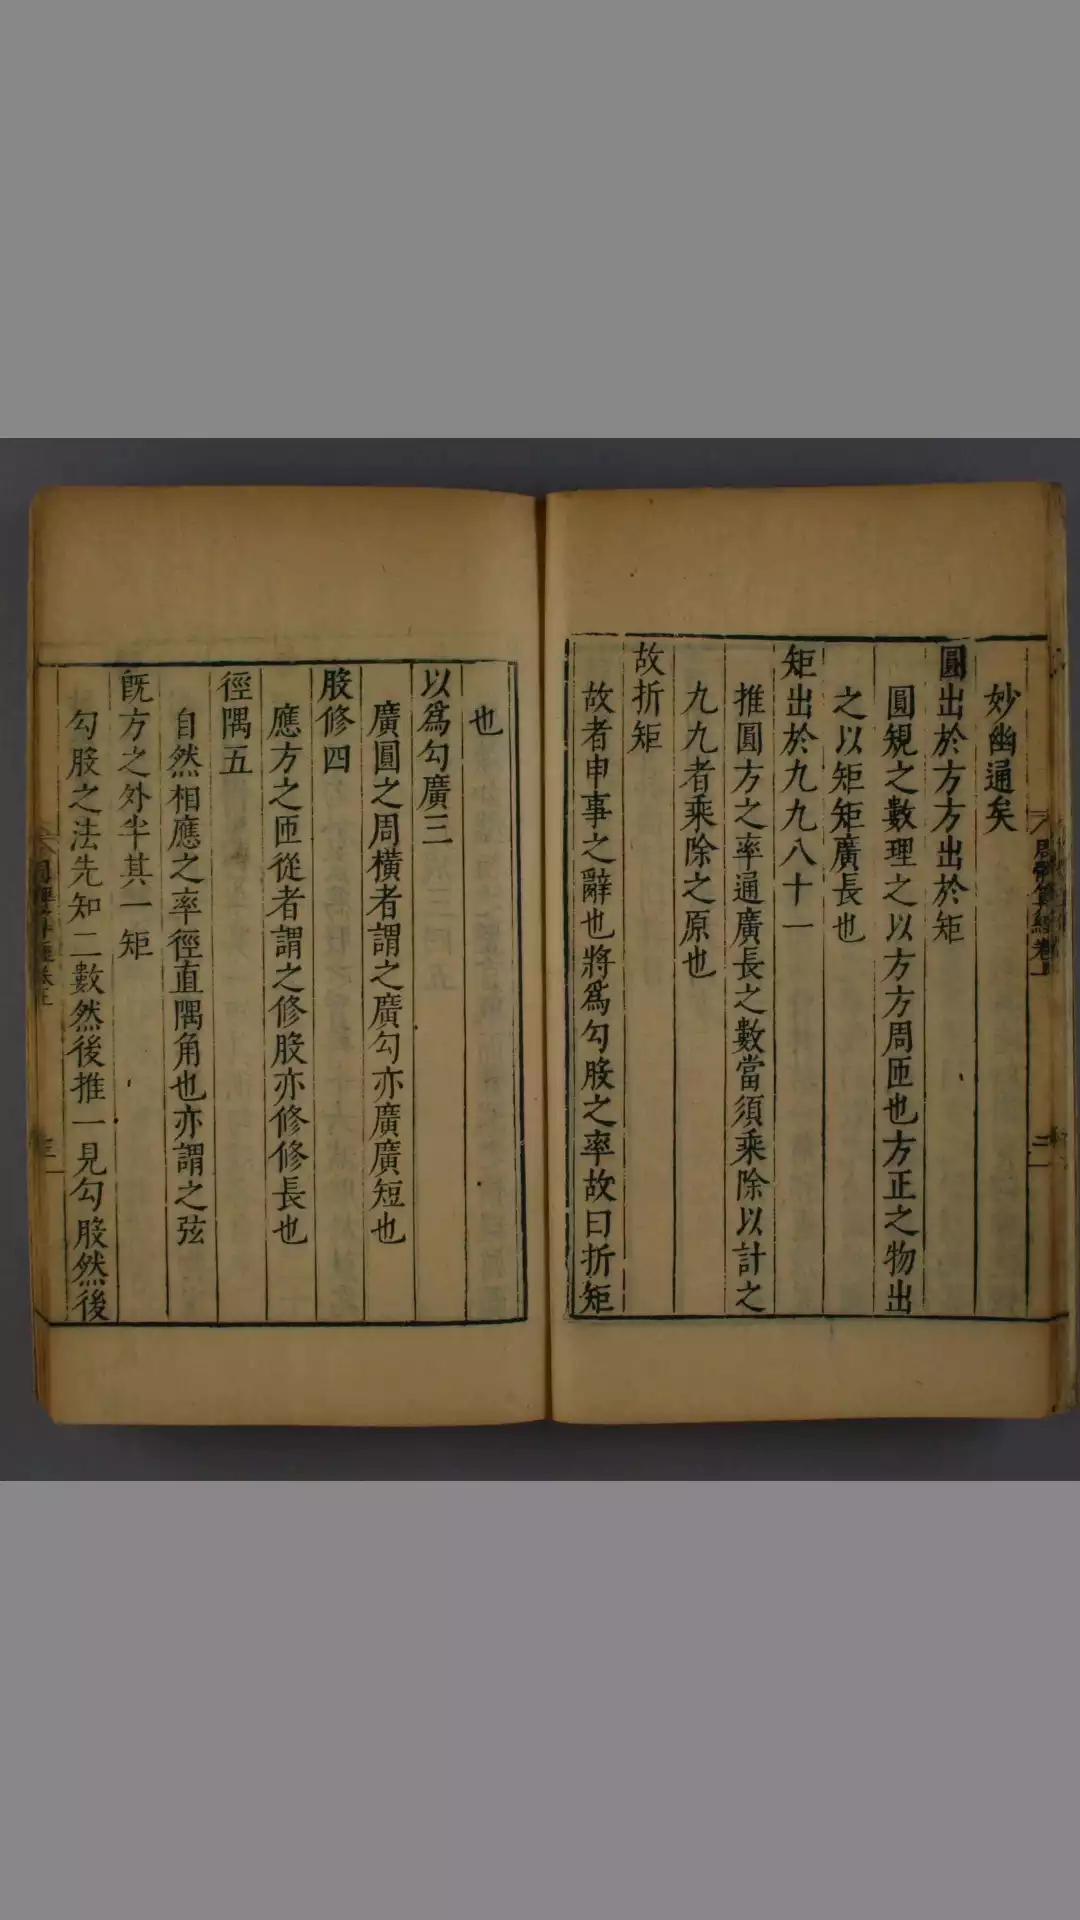 周髀算經卷上
二
妙幽通矣
圓出於方方出於矩
圓規之數理之以方方周匝也方正之物出
之以矩矩廣長也
矩出於九九八十一
推圓方之率通廣長之數當須乘除以計之
九九者乘除之原也
故折矩
故者申事之辭也將爲勾股之率故曰折矩
也
以爲勾廣三
廣圓之周橫者謂之廣勾亦廣廣短也
股修四
應方之匝從者謂之修股亦修修長也
徑隅五
自然相應之率徑直隅角也亦謂之弦
旣方之外半其一矩
勾股之法先知二數然後推一見勾股然後
三